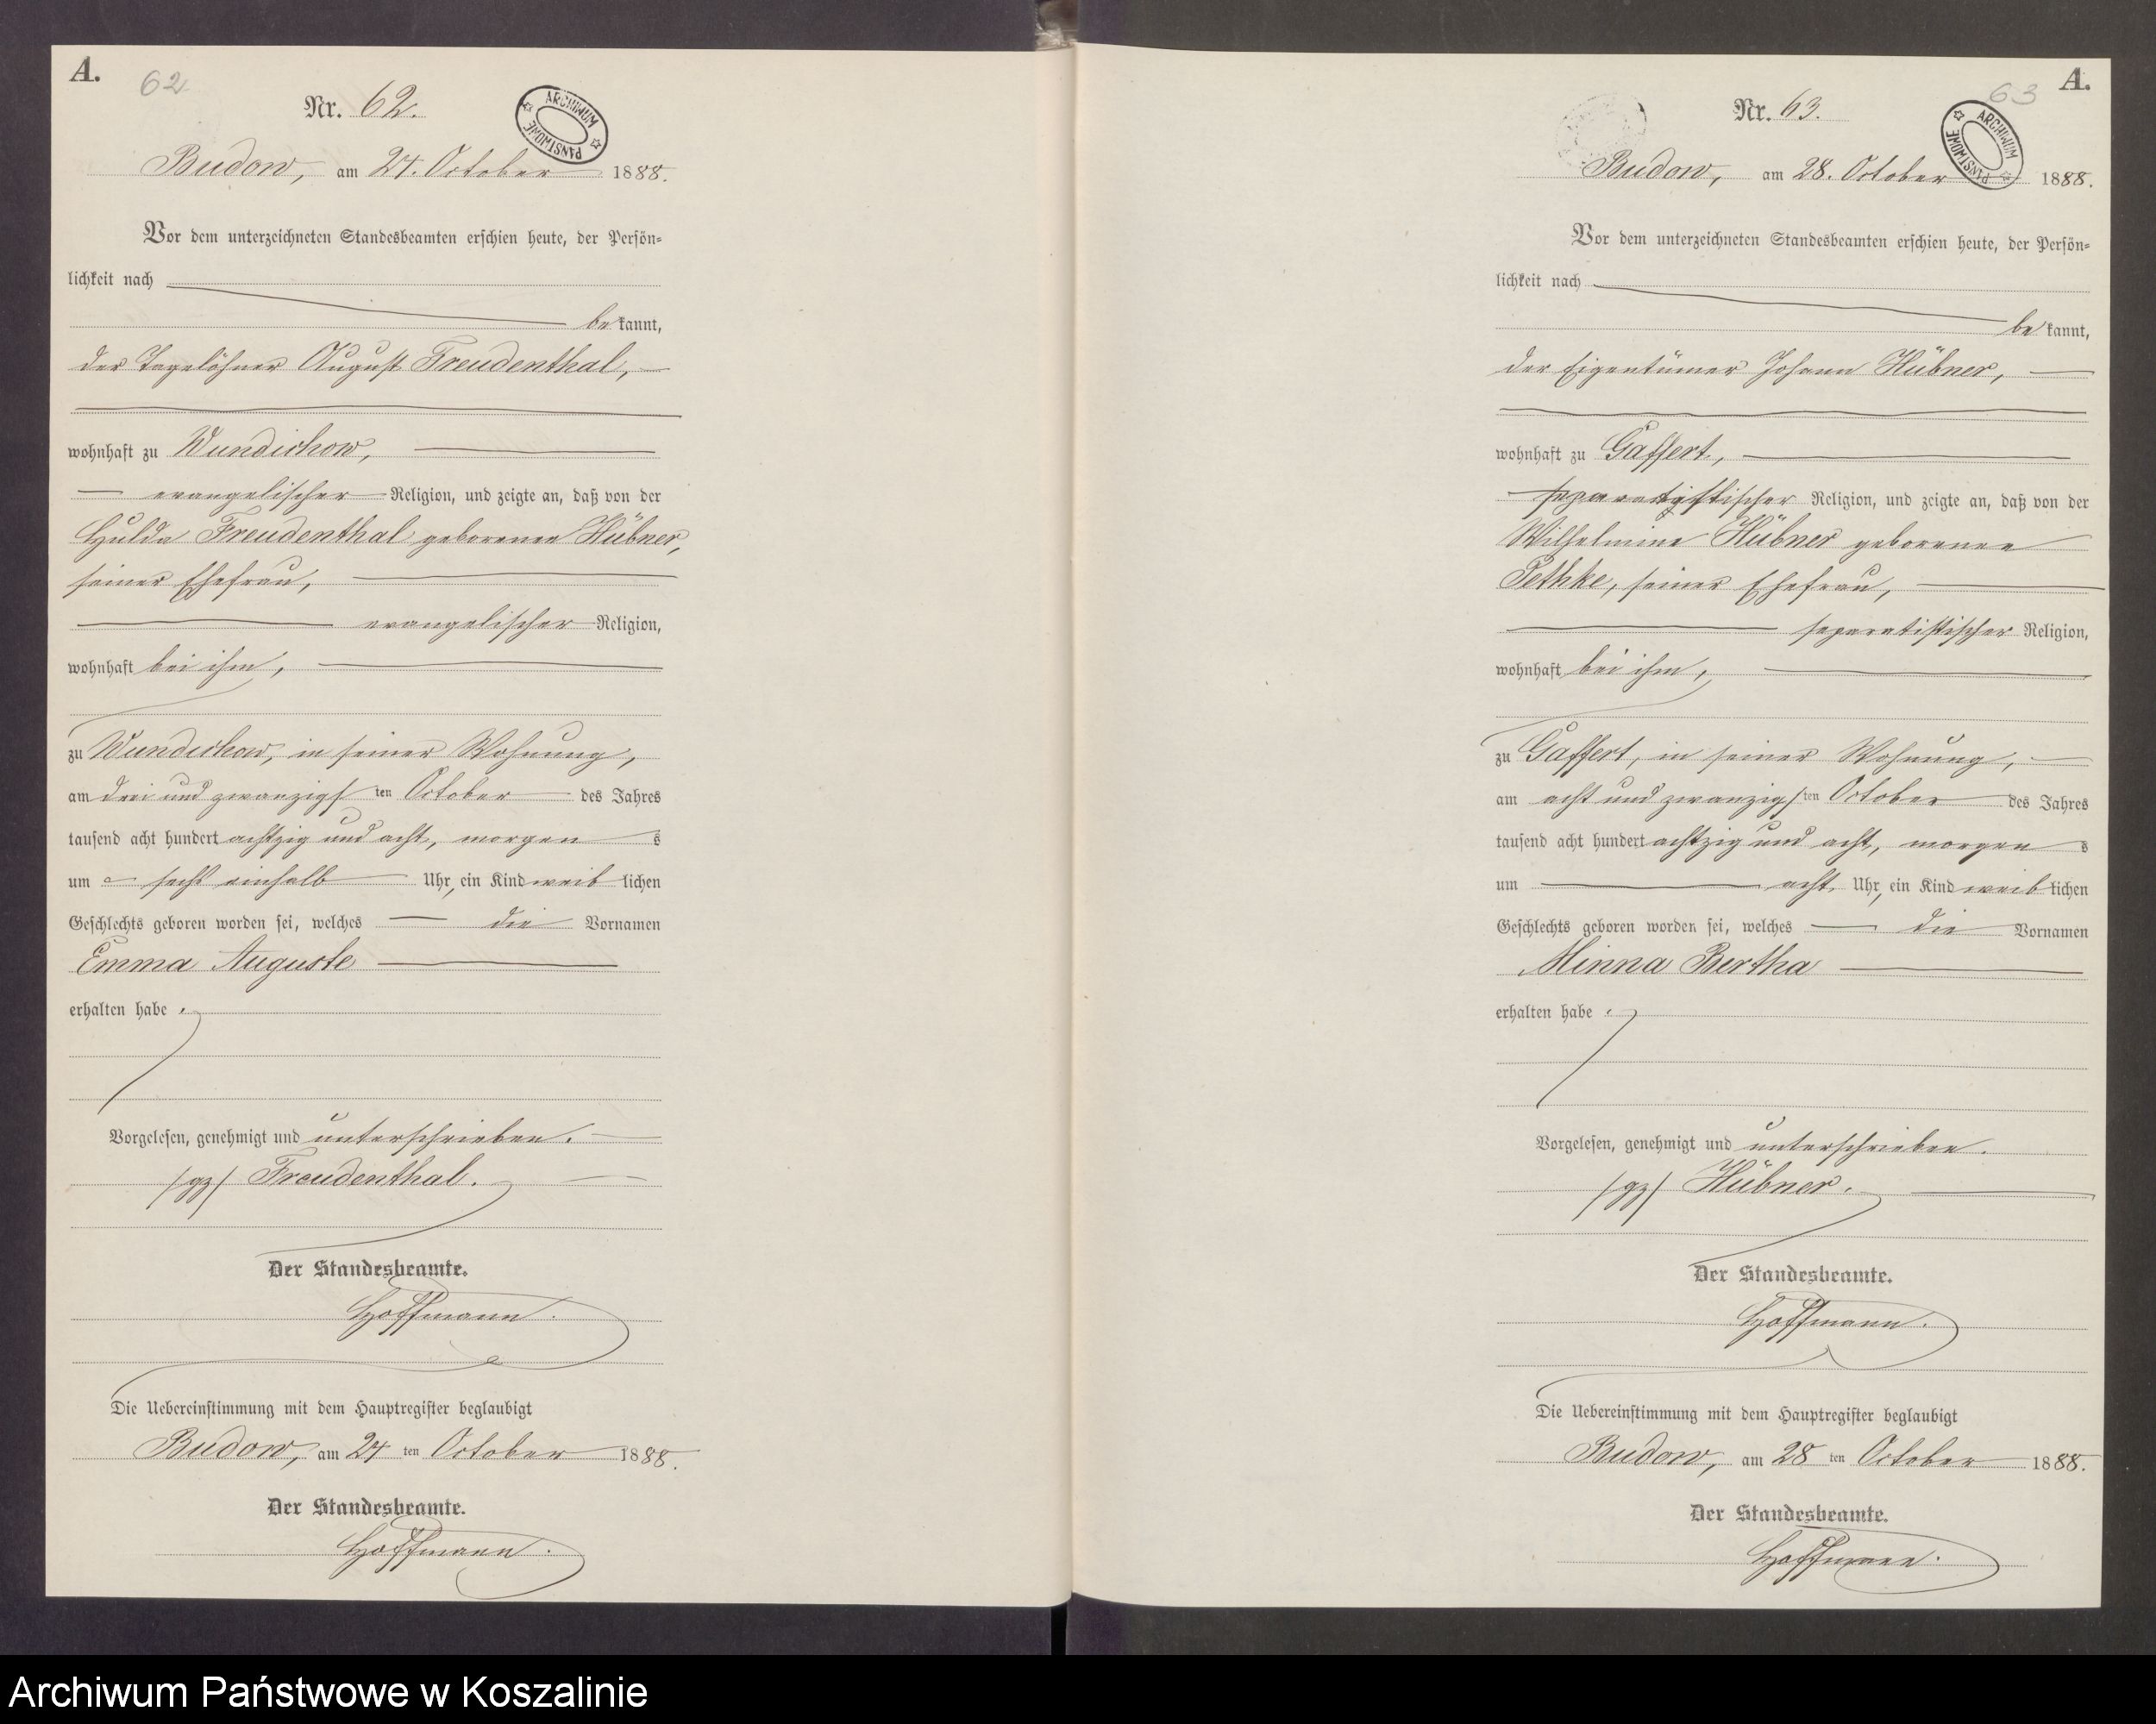 A.
62
Nr. 62.
ARCHIWUM PAŃSTWOWE
Budow, am 24. October 1888.
Vor dem unterzeichneten Standesbeamten erschien heute, der Persön-
lichkeit nach
bekannt,
der Tagelöhner August Freudenthal,
wohnhaft zu Wundichow,
evangelischer Religion, und zeigte an, daß von der
Hulda Freudenthal geborenen Hübner,
seiner Ehefrau,
evangelischer Religion,
wohnhaft bei ihm,
zu Wundichow, in seiner Wohnung,
am drei und zwanzigsten October des Jahres
tausend acht hundert achtzig und acht, morgens
um sechs einhalb Uhr, ein Kind weiblichen
Geschlechts geboren worden sei, welches die Vornamen
Emma Auguste
erhalten habe.
Vorgelesen, genehmigt und unterschrieben.
/gz/ Freudenthal.
Der Standesbeamte.
Hoffmann.
Die Uebereinstimmung mit dem Hauptregister beglaubigt
Budow, am 24 ten October 1888.
Der Standesbeamte.
Hoffmann.
A.
63
Nr. 63.
ARCHIWUM PAŃSTWOWE
Budow, am 28. October 1888.
Vor dem unterzeichneten Standesbeamten erschien heute, der Persön-
lichkeit nach
bekannt,
der Eigentümer Johann Hübner,
wohnhaft zu Gaffert,
separatistischer Religion, und zeigte an, daß von der
Wilhelmine Hübner geborenen
Pethke, seiner Ehefrau,
separatistischer Religion,
wohnhaft bei ihm,
zu Gaffert, in seiner Wohnung,
am acht und zwanzigsten October des Jahres
tausend acht hundert achtzig und acht, morgens
um acht Uhr, ein Kind weiblichen
Geschlechts geboren worden sei, welches die Vornamen
Minna Bertha
erhalten habe.
Vorgelesen, genehmigt und unterschrieben.
/gz/ Hübner.
Der Standesbeamte.
Hoffmann.
Die Uebereinstimmung mit dem Hauptregister beglaubigt
Budow, am 28 ten October 1888.
Der Standesbeamte.
Hoffmann.
Archiwum Państwowe w Koszalinie